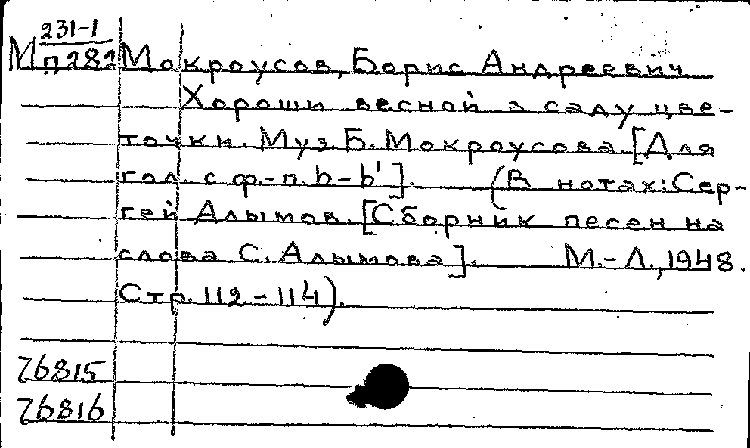 231-1
М п282 Мокроусов, Борис Андреевич
Хороши весной в саду цве-
точки. Муз. Б. Мокроусова. [Для
гол. с ф.-п. h-h¹]. (В нотах: Сер-
гей Алымов. [Сборник песен на
слова С. Алымова]. М.-Л., 1948.
Стр. 112-114).
76815
76816